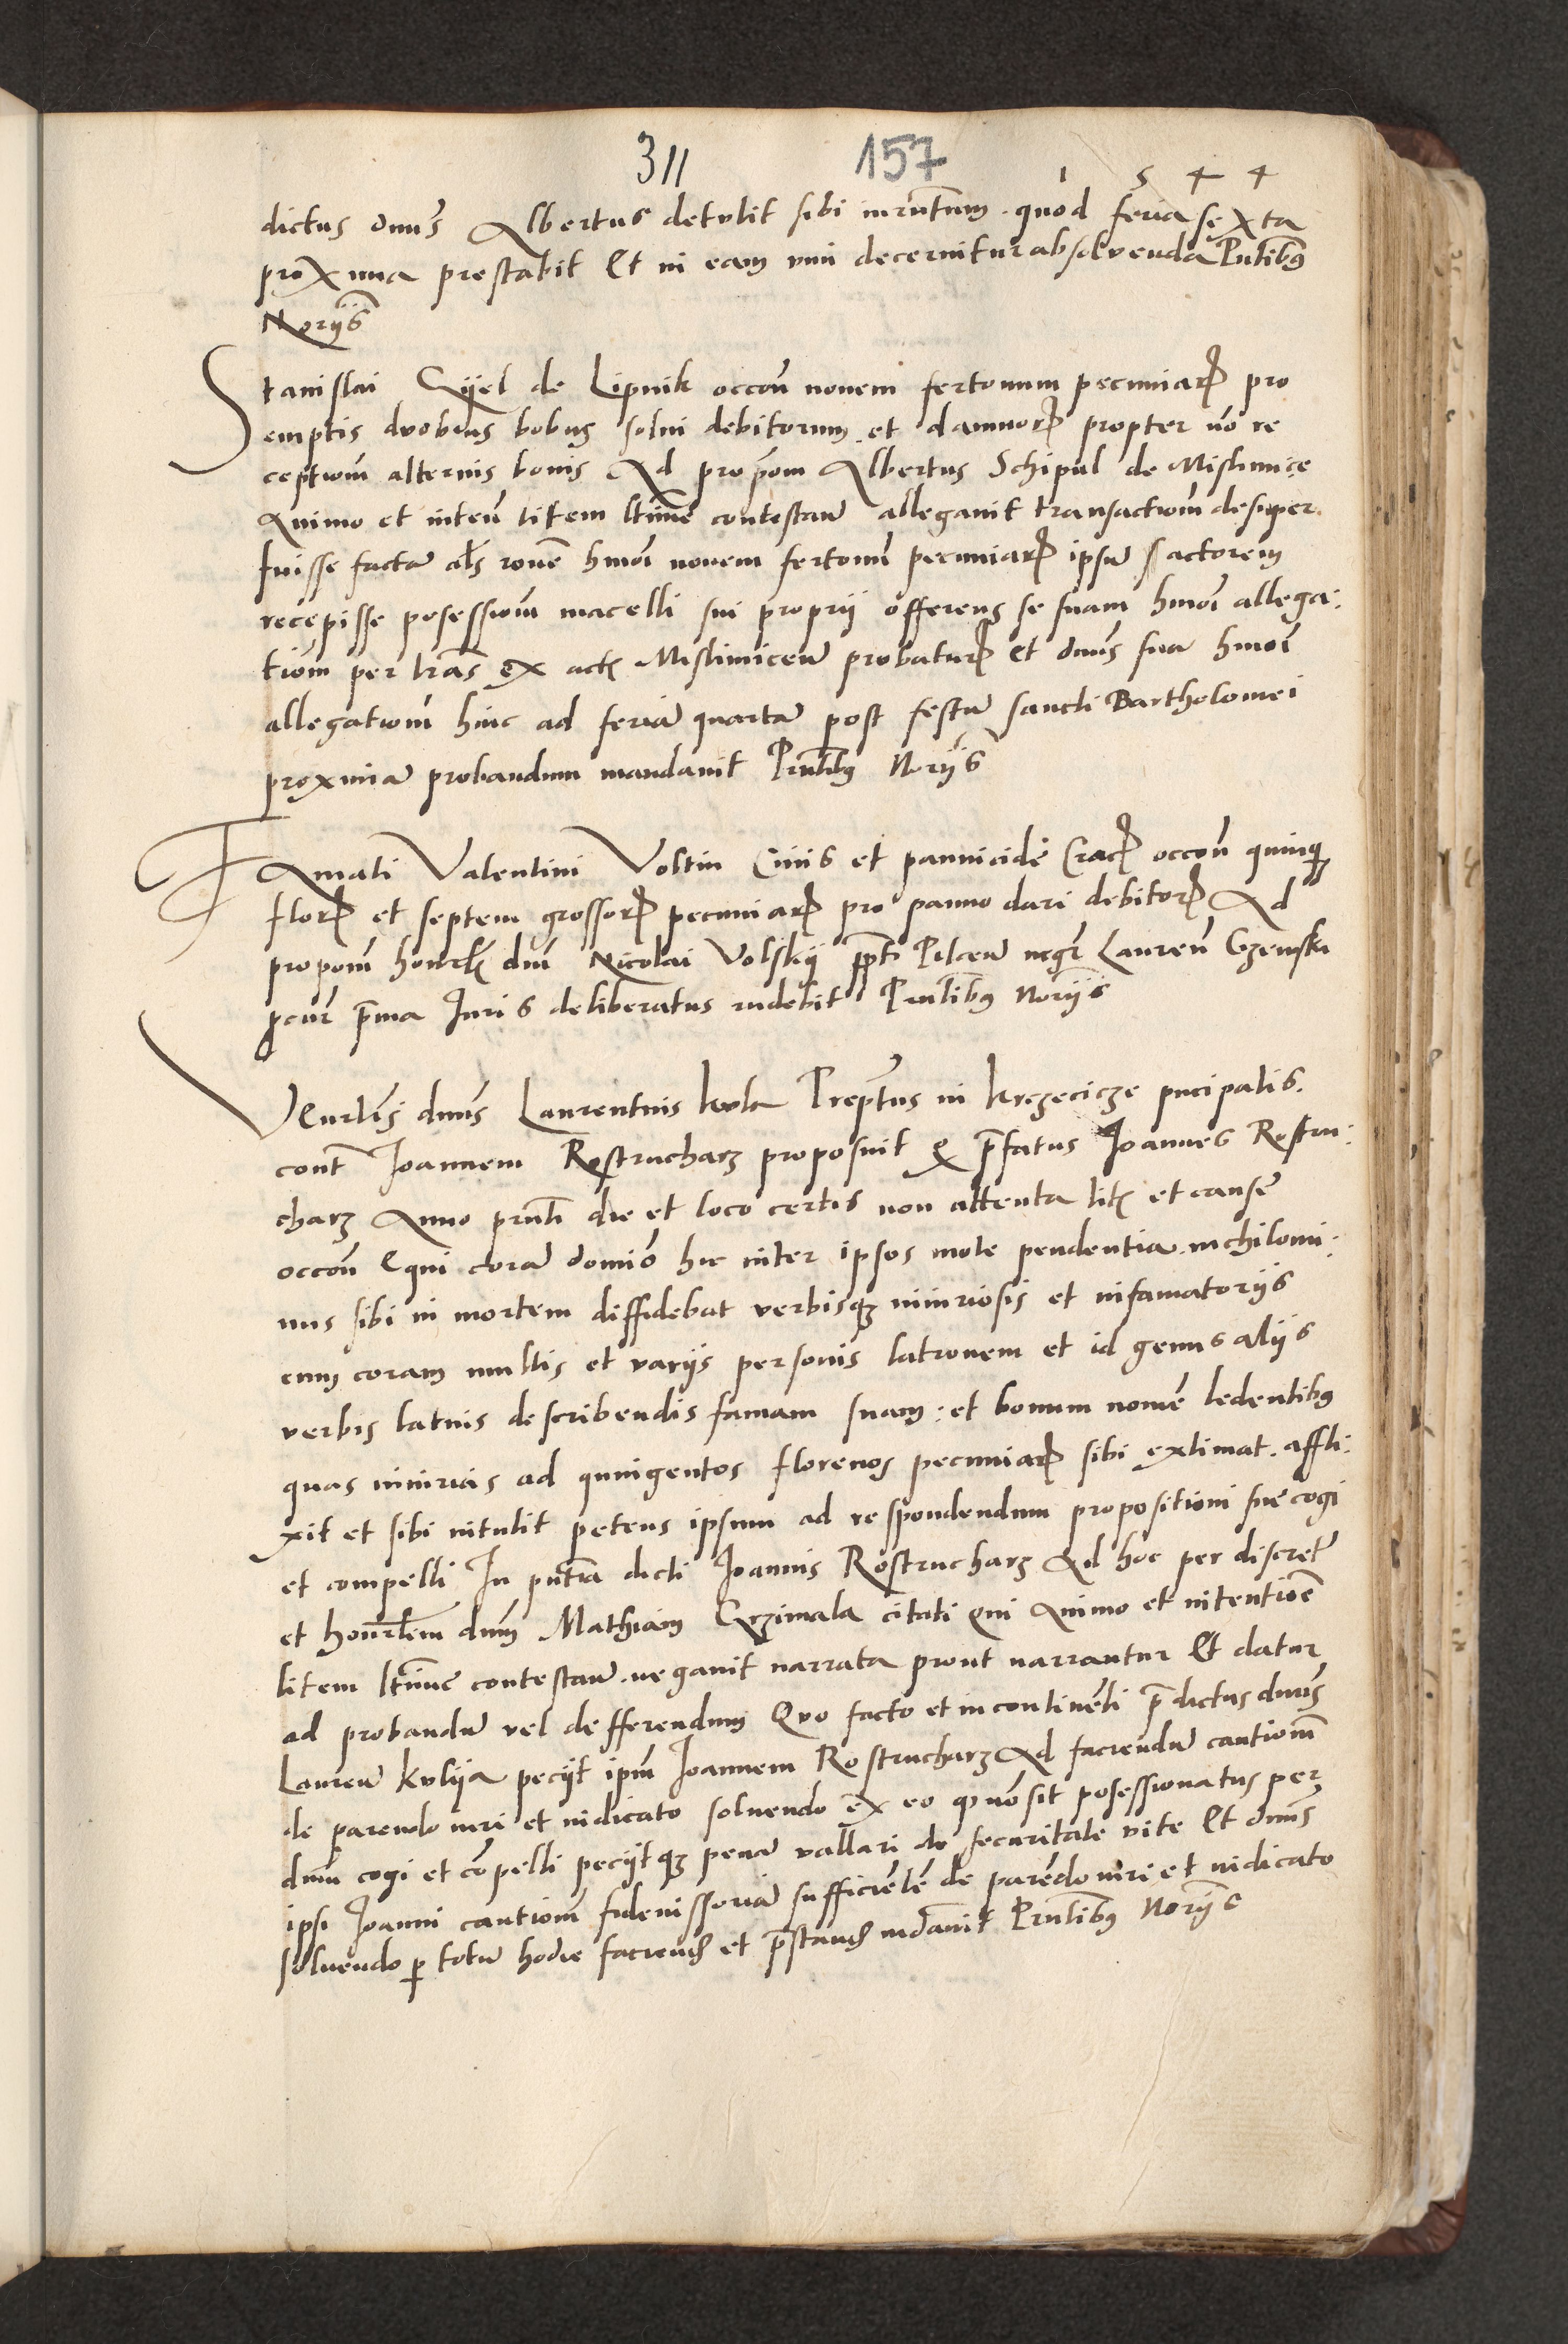 311 157 1 5 4 4
dictus dnus Albertus detulit sibi iurūtum. quod feria sexta
proxima prestabit Et in eam vim decernitur absolvenda Pntibus
Noriis
Stanislai Cyel de Lipnik occōn novem fertonum pecuniarꝝ pro
emptis duobus bobus solui debitorum. et damnorꝝ propter nō re
ceptiom alterius bovis Ad propōm Albertus Schipul de Mislimice
Animo et intēn litem lītime contestan̄ allegavit transactiom desuper
fuisse factā als rōne hmōi novem fertonū pecuniarꝝ ipsum actorem
recepisse posessiom macelli sui proprii offerens se suam hmōi allega:
tiom per lrās ex actꝭ Mislimiceñ probaturꝝ et dnus sua hmōi
allegatiom hinc ad feriā quartā post festū sancti Bartholomei
proximā probandum mandavit Pntibus Noriis
Famati Valentini Voltin Civis et pannicide Cracꝝ occōn quinqꝫ
florꝝ et septem grossorꝝ pecuniarꝝ pro panno dari debitorꝝ Ad
propōm honorlꝭ dni Nicolai Volskij ppti Pilceñ Laureñ Czemska
pcur prima Juris deliberatus rndebit Pntibus Noriis
Venrlis dnus Laurentius kula Preptus in krzecicze pncipalis.
cont Joannem Rostrucharz proposuit ꝙ prefatus Joannes Rostru:
charz Anno pnti die et loco certis non attenta litꝭ et cause
occōn equi corā domiō hic inter ipsos mote pendentia. nichilomi:
nus sibi in mortem diffidebat verbisqꝫ iniuriosis et infamatoriis
eum coram multis et variis personis latronem et id genus aliis
verbis latius describendis famam suam: et bonum nomē ledentibus
quas iniurias ad quingentos florenos pecuniarꝝ sibi extimat. affli:
xit et sibi intulit petens ipsum ad respondendum propositioni sue cogi
et compelli In pntia dicti Joannis Rostrucharz Ad hoc per discretꝭ
et honorlem dnm Mathiam Grzimala citati qui Animo et intentiōe
litem lītime contestan̄. negavit narrata prout narrantur Et datur
ad probandū vel defferendum Quo facto et incontinēti predictus dnus
Laureñ kulya peciit ipm Joannem Rostrucharz Ad faciendū cautiom
de parendo iuri et iudicato solvendo ex eo ꝙ nō sit posessionatus per
dnm cogi et cōpelli peciitqꝫ penā vallari de securitate vite Et dnus
ipsi Joanni cautiom fideiussoriā sufficiētē de parēdo iuri et iudicato
solvendo ꝑ totū hodie faciendꝭ et prestandꝭ mdavit Pntibus Noriis